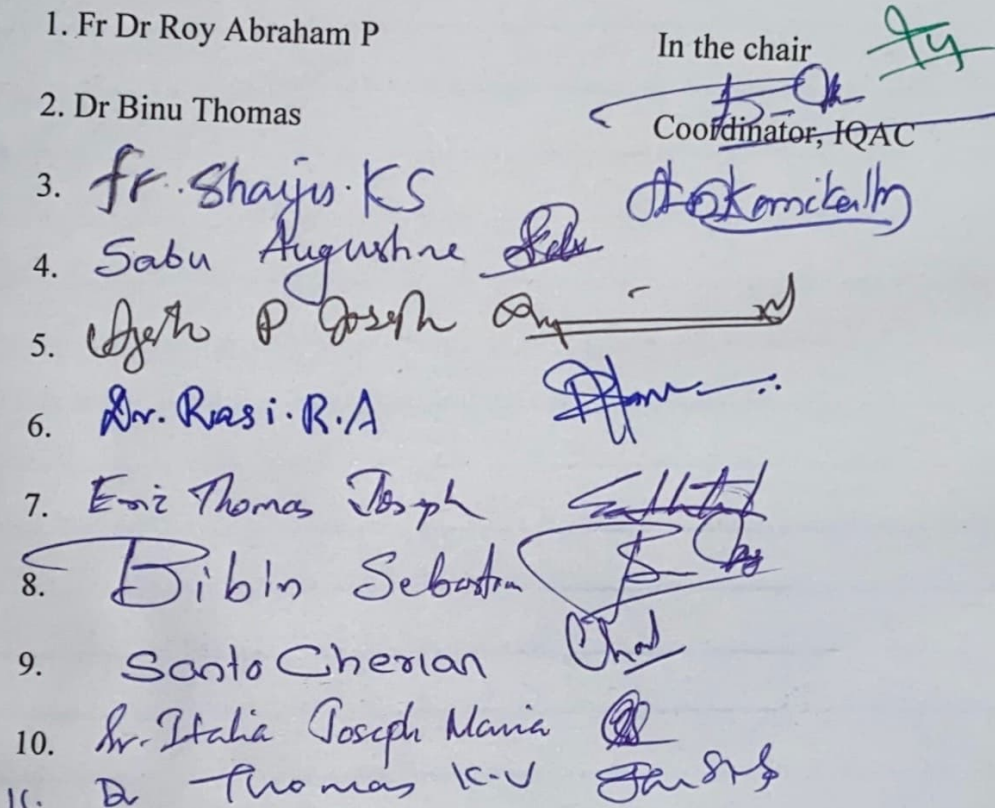 1. Fr Dr Roy Abraham P In the chair
2. Dr Binu Thomas Coordinator, IQAC
3. fr. Shaiju. KS
4. Sabu Augustine Sabu
5. P Joseph
6. Dr. Rasi. R.A
7. Thomas Joseph
8. Bibin Sebastian
9. Santo Cherian
10. Sr. Italia Joseph Maria
11. Dr Thomas K.V